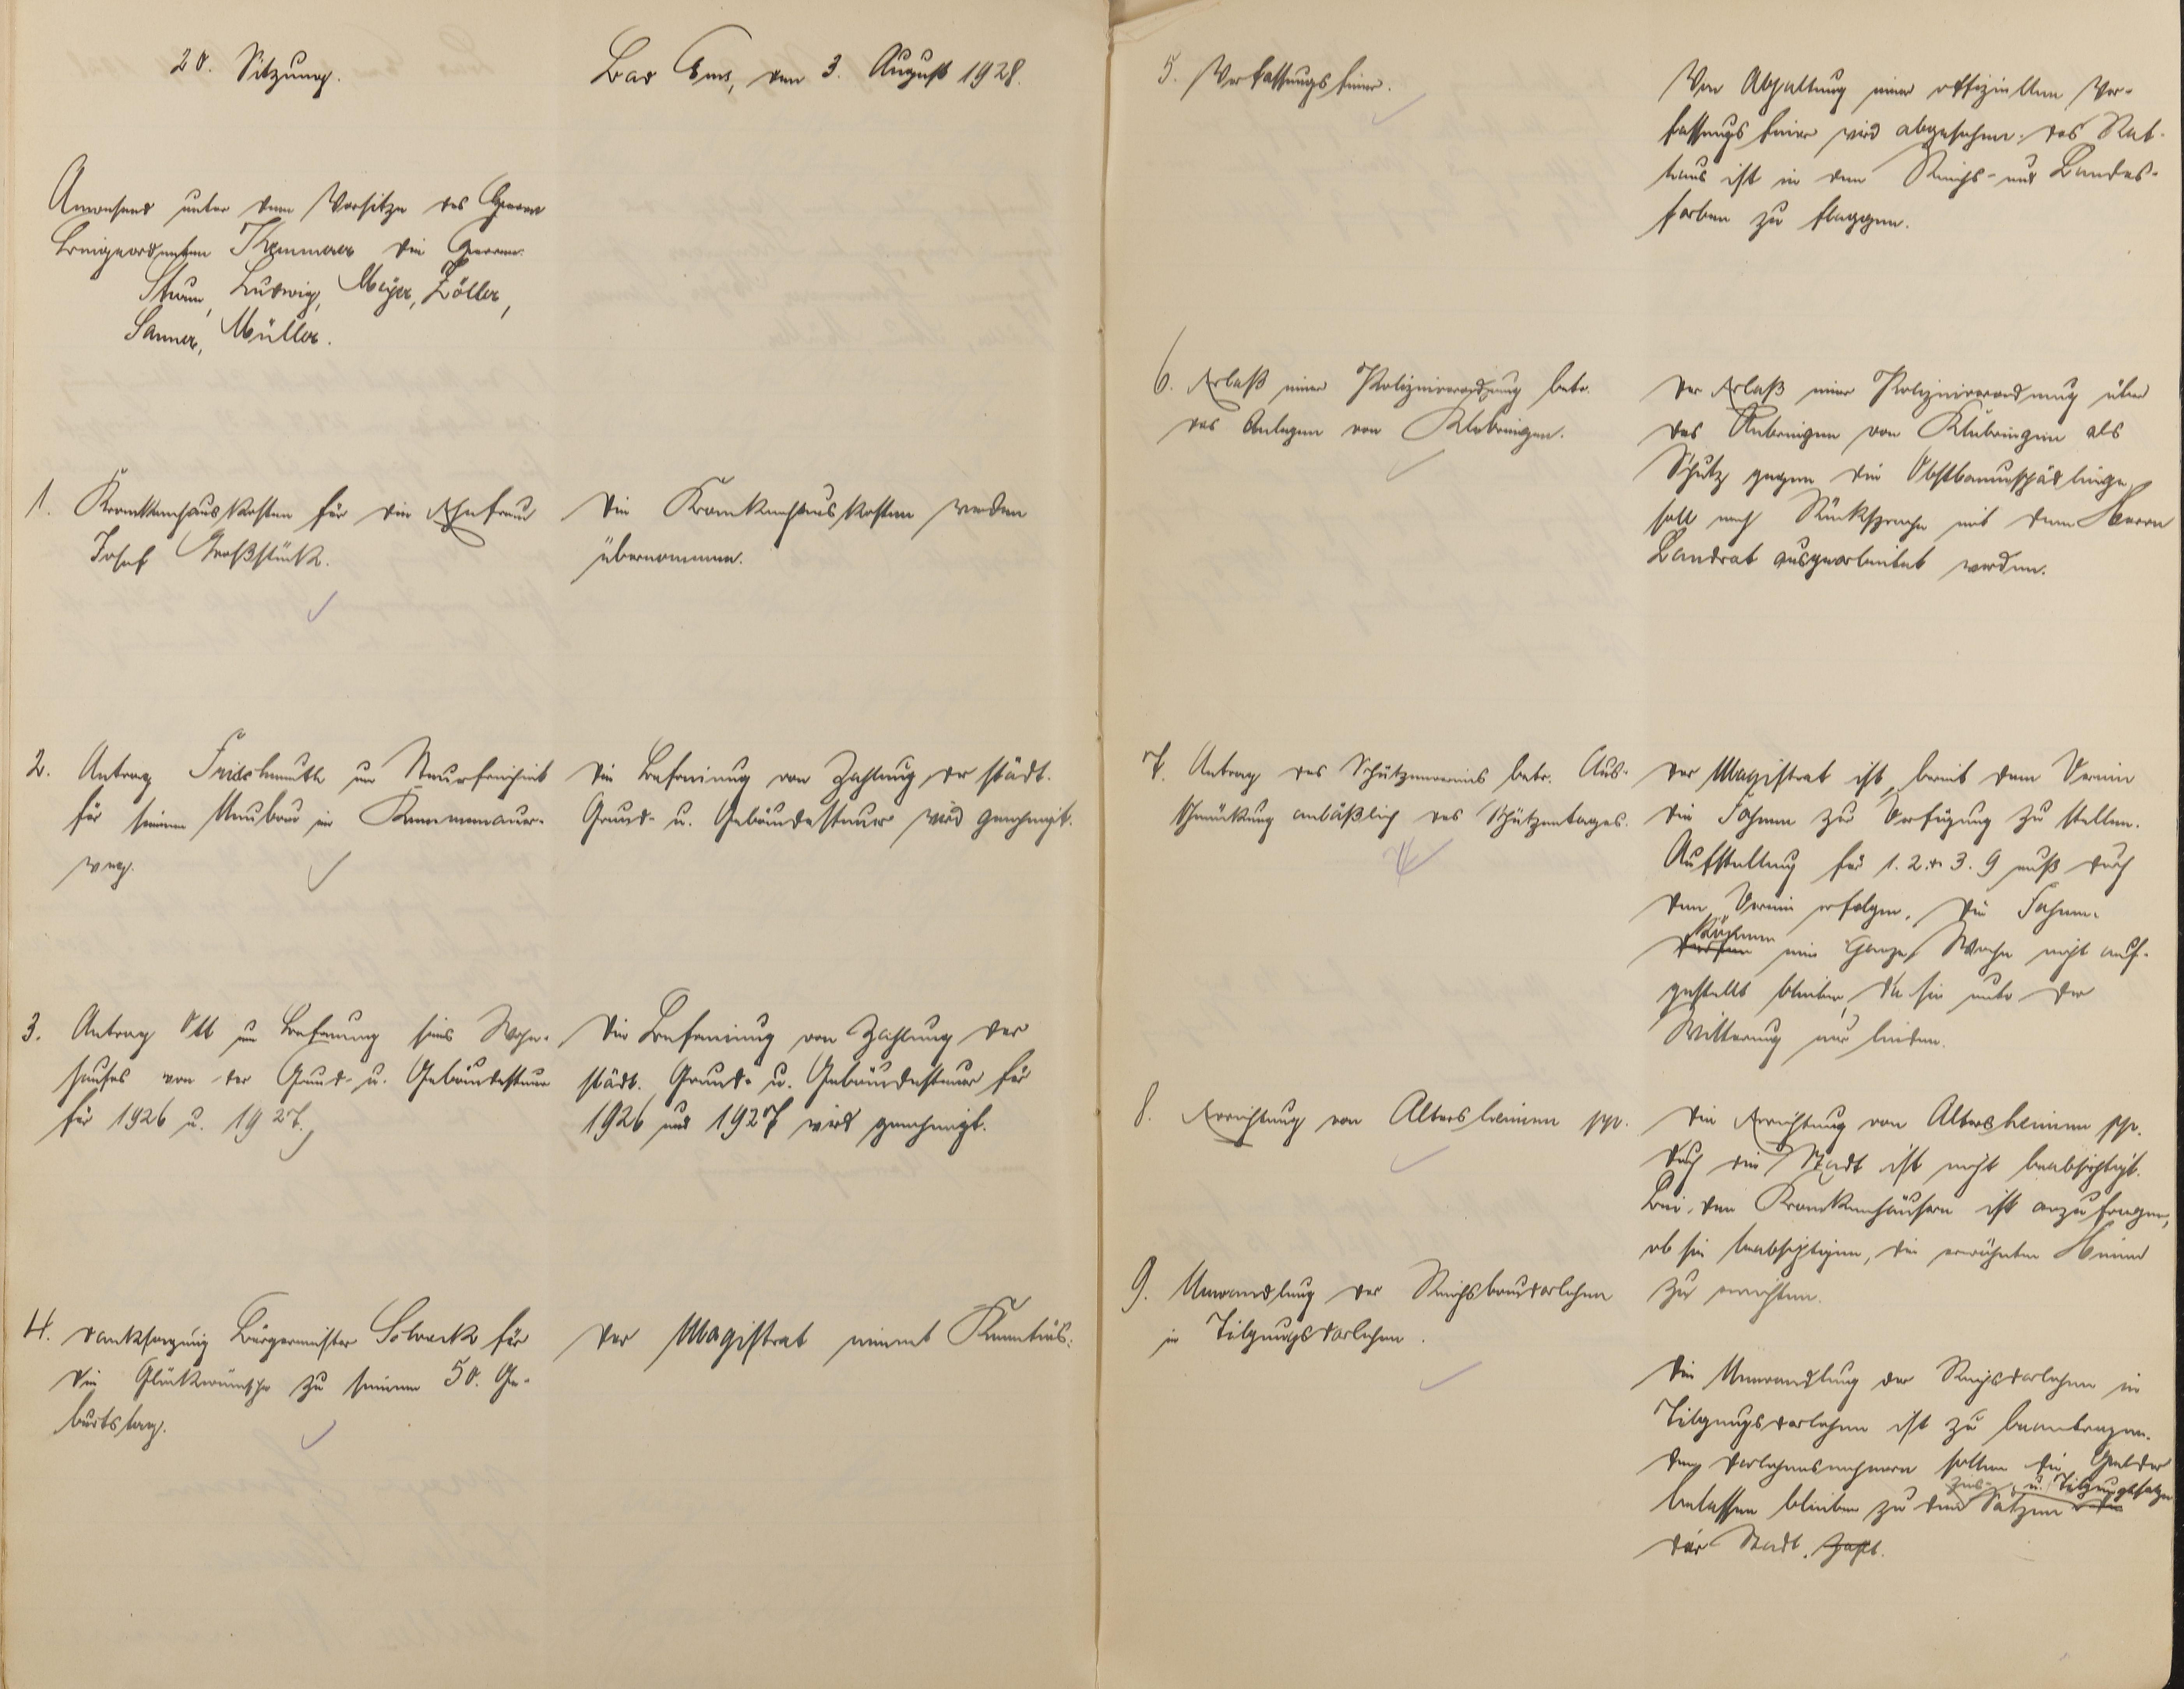 20. Sitzung.
Bad Ems, den 3. August 1928.
Anwesend unter dem Vorsitze des Herrn
Beigeordneten Kemmerer die Herren
Sturm, Ludwig, Meyer, Zöller,
Sanner, Müller.
1. Krankenhauskosten für die Ehefrau
Josef Großstück.
Die Krankenhauskosten werden
übernommen.
2. Antrag Friedemuth um Steuerfreiheit
für seinen Neubau im Kemmenauer-
weg.
Die Befreiung von Zahlung der städt.
Grund- u. Gebäudesteuer wird genehmigt.
3. Antrag Ott um Befreiung seines Wohn-
hauses von der Grund- u. Gebäudesteuer
für 1926 u. 1927.
Die Befreiung von Zahlung der
städt. Grund- u. Gebäudesteuer für
1926 und 1927 wird genehmigt.
4. Danksagung Bürgermeister Schreck für
die Glückwünsche zu seinem 50. Ge-
burtstag.
Der Magistrat nimmt Kenntnis.
5. Verfassungsfeier.
Von Abhaltung einer offiziellen Ver-
fassungsfeier wird abgesehen. Das Rat-
haus ist in den Reichs- und Landes-
farben zu flaggen.
6. Erlaß einer Polizeiverordnung betr.
das Anlegen von Klebringen.
Der Erlaß einer Polizeiverordnung über
das Anbringen von Klebringen als
Schutz gegen die Obstbaumschädlinge
soll nach Rücksprache mit dem Herrn
Landrat ausgearbeitet werden.
7. Antrag des Schützenvereins betr. Aus-
schmückung anläßlich des Schützentages.
Der Magistrat ist bereit dem Verein
die Fahnen zur Verfügung zu stellen.
Aufstellung für 1. 2. 3. 9 muß durch
den Verein erfolgen. Die Fahnen
können
dürfen eine ganze Woche nicht auf-
gestellt bleiben, da sie unter der
Witterung nur leiden.
8. Errichtung von Altersheimen pp.
Die Errichtung von Altersheimen pp.
durch die Stadt ist nicht beabsichtigt.
Bei den Krankenhäusern ist anzufragen,
ob sie beabsichtigen, die erwähnten Heime
zu errichten.
9. Umwandlung der Reichsbaudarlehen
in Tilgungsdarlehen.
Die Umwandlung der Reichsdarlehen in
Tilgungsdarlehen ist zu beantragen.
Den Darlehensnehmern sollen die Gelder
Zins- u. Tilgungssätzen
belassen bleiben zu den Sätzen die
der Stadt. zahlt.